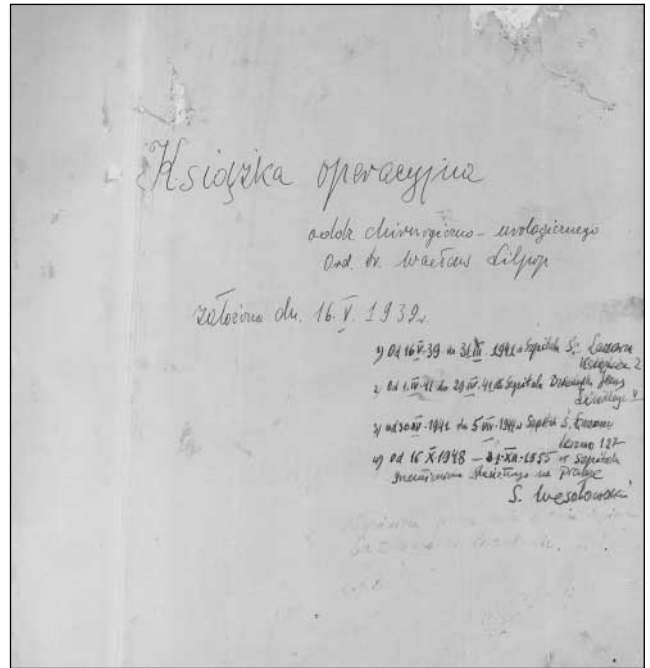 Książka operacyjna
oddz chirurgiczno-urologicznego
Ord. dr. Wacław Lilpop
założona dn. 16. V. 1939r.
1) Od 16 V-39 do 31 III 1941 w Szpitalu Ś. Łazarza
Książęca 2
2) Od 1. IV-41 do 29 IV. 41 w Szpitalu Dzieciątka Jezus
4
3) od 30 IV-1941 do 5 VIII-1944 w Szpitalu Ś. Łazarza
Leszno 127
4) Od 16 X-1948 – 31-XII-1955 w Szpitalu
Przemienienia Pańskiego na Pradze
S. Wesołowski